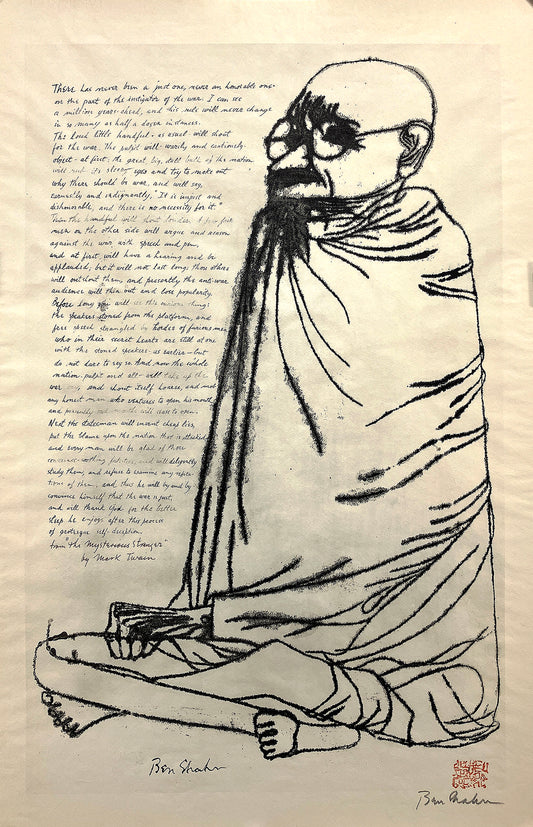 There has never been a just one, never an honorable one-
on the part of the instigator of the war. I can see
a million years ahead, and this rule will never change
in so many as half a dozen instances.
The loud little handful - as usual will shout
for the war. The pulpit will - warily and cautiously-
object - at first, the great, big, dull bulk of the nation
will rub its sleepy eyes and try to make out
why there should be war, and will say,
earnestly and indignantly, "It is unjust and
dishonorable, and there is no necessity for it."
Then the handful will shout louder. A few fair
men on the other side will argue and reason
against the war with speech and pen,
and at first, will have a hearing and be
applauded; but it will not last long; those others
will outshout them, and presently the anti-war
audiences will thin out and lose popularity.
Before long you will see this curious thing:
the speakers stoned from the platform, and
free speech strangled by hordes of furious men
who in their secret hearts are still at one
with those stoned speakers - as earlier - but
do not dare to say so. And now the whole
nation - pulpit and all - will take up the
war cry, and shout itself hoarse, and mob
any honest man who ventures to open his mouth
and presently such mouths will cease to open.
Next the statesmen will invent cheap lies,
put the blame upon the nation that is attacked
and every man will be glad of those
conscience-soothing falsities, and will diligently
study them, and refuse to examine any refuta-
tions of them, and thus he will by and by
convince himself that the war is just,
and will thank God for the better
sleep he enjoys after this process
of grotesque self-deception.
from "the Mysterious Stranger"
by Mark Twain
Ben Shahn
Ben Shahn